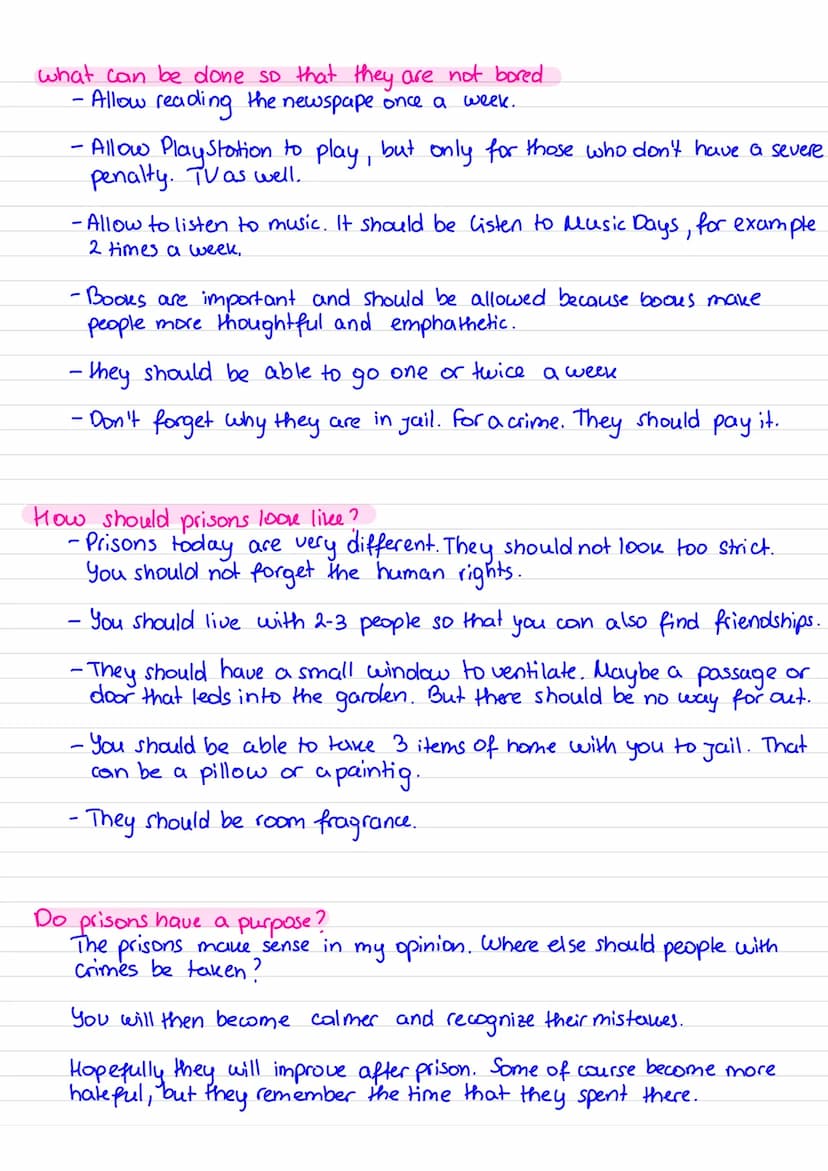 what can be done so that they are not bored
- Allow reading the newspape once a week.
- Allow PlayStation to play, but only for those who don't have a severe
penalty. TV as well.
- Allow to listen to music. It should be listen to Music Days, for example
2 times a week.
- Books are important and should be allowed because books make
people more thoughtful and emphathetic.
- they should be able to go one or twice a week
- Don't forget why they are in jail. For a crime. They should pay it.
How should prisons look like?
- Prisons today are very different. They should not look too strict.
You should not forget the human rights.
- You should live with 2-3 people so that you can also find friendships.
- They should have a small window to ventilate. Maybe a passage or
door that leds into the garden. But there should be no way for out.
- You should be able to take 3 items of home with you to jail. That
can be a pillow or a paintig.
- They should be room fragrance.
Do prisons have a purpose?
The prisons make sense in my opinion. Where else should people with
crimes be taken?
You will then become calmer and recognize their mistakes.
Hopefully they will improve after prison. Some of course become more
hateful, but they remember the time that they spent there.